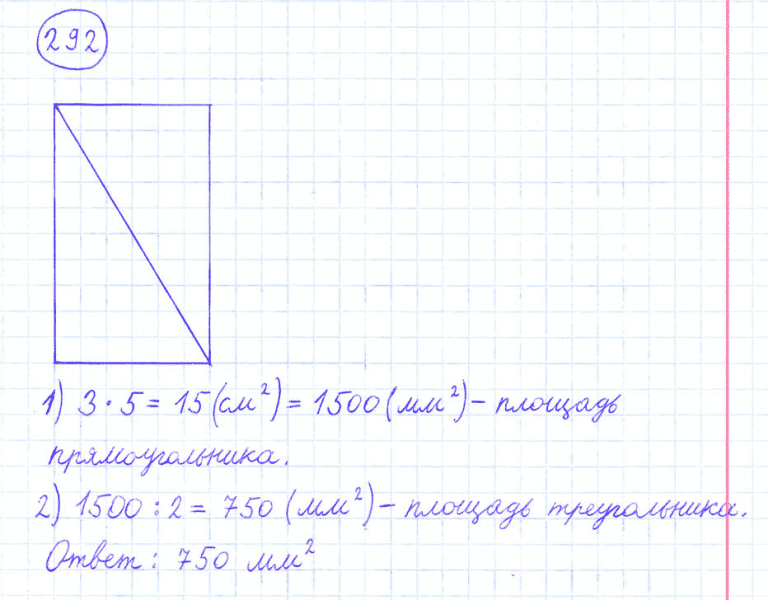 292
1) 3 · 5 = 15 (см²) = 1500 (мм²) – площадь
прямоугольника.
2) 1500 : 2 = 750 (мм²) – площадь треугольника.
Ответ: 750 мм²